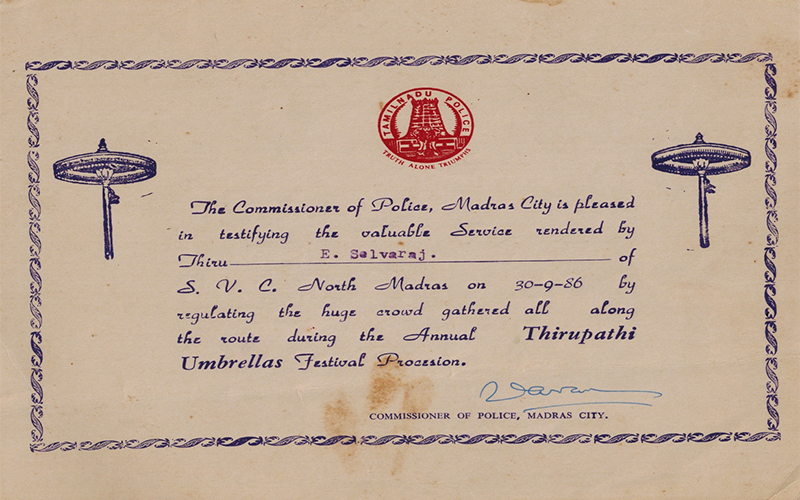 TAMILNADU POLICE
TRUTH ALONE TRIUMPHS
The Commissioner of Police, Madras City is pleased
in testifying the valuable Service rendered by
Thiru E. Selvaraj. of
S. V. C. North Madras on 30-9-86 by
regulating the huge crowd gathered all along
the route during the Annual Thirupathi
Umbrellas Festival Procesion.
COMMISSIONER OF POLICE, MADRAS CITY.